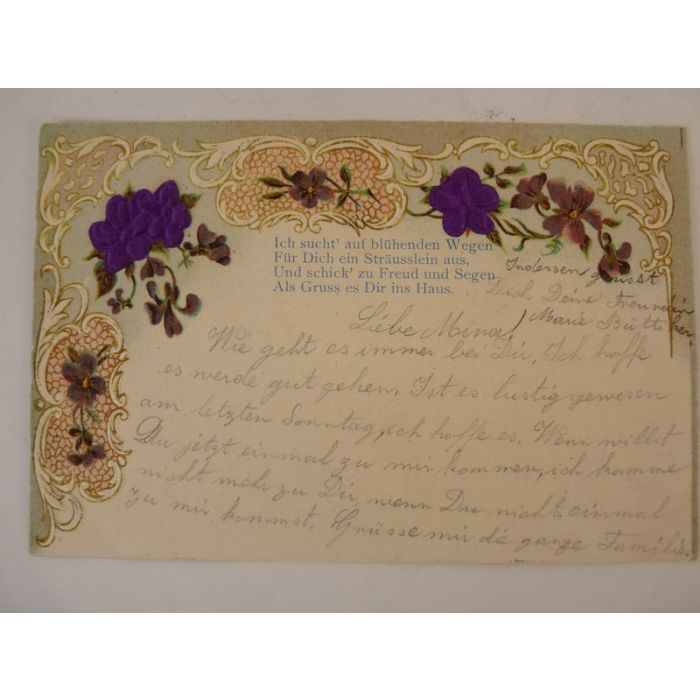 Ich sucht' auf blühenden Wegen
Für Dich ein Sträusslein aus,
Und schick' zu Freud und Segen
Als Gruss es Dir ins Haus.
Indessen grüsst
Dich Deine Freundin
Marie Büttiker.
Liebe Mina!
Wie geht es immer bei Dir, Ich hoffe
es werde gut gehen. Ist es lustig gewesen
am letzten Sonntag, ich hoffe es. Wenn willst
Du jetzt einmal zu mir kommen, ich komme
nicht mehr zu Dir, wenn Du nicht einmal
zu mir kommst. Grüsse mir die ganze Familie.